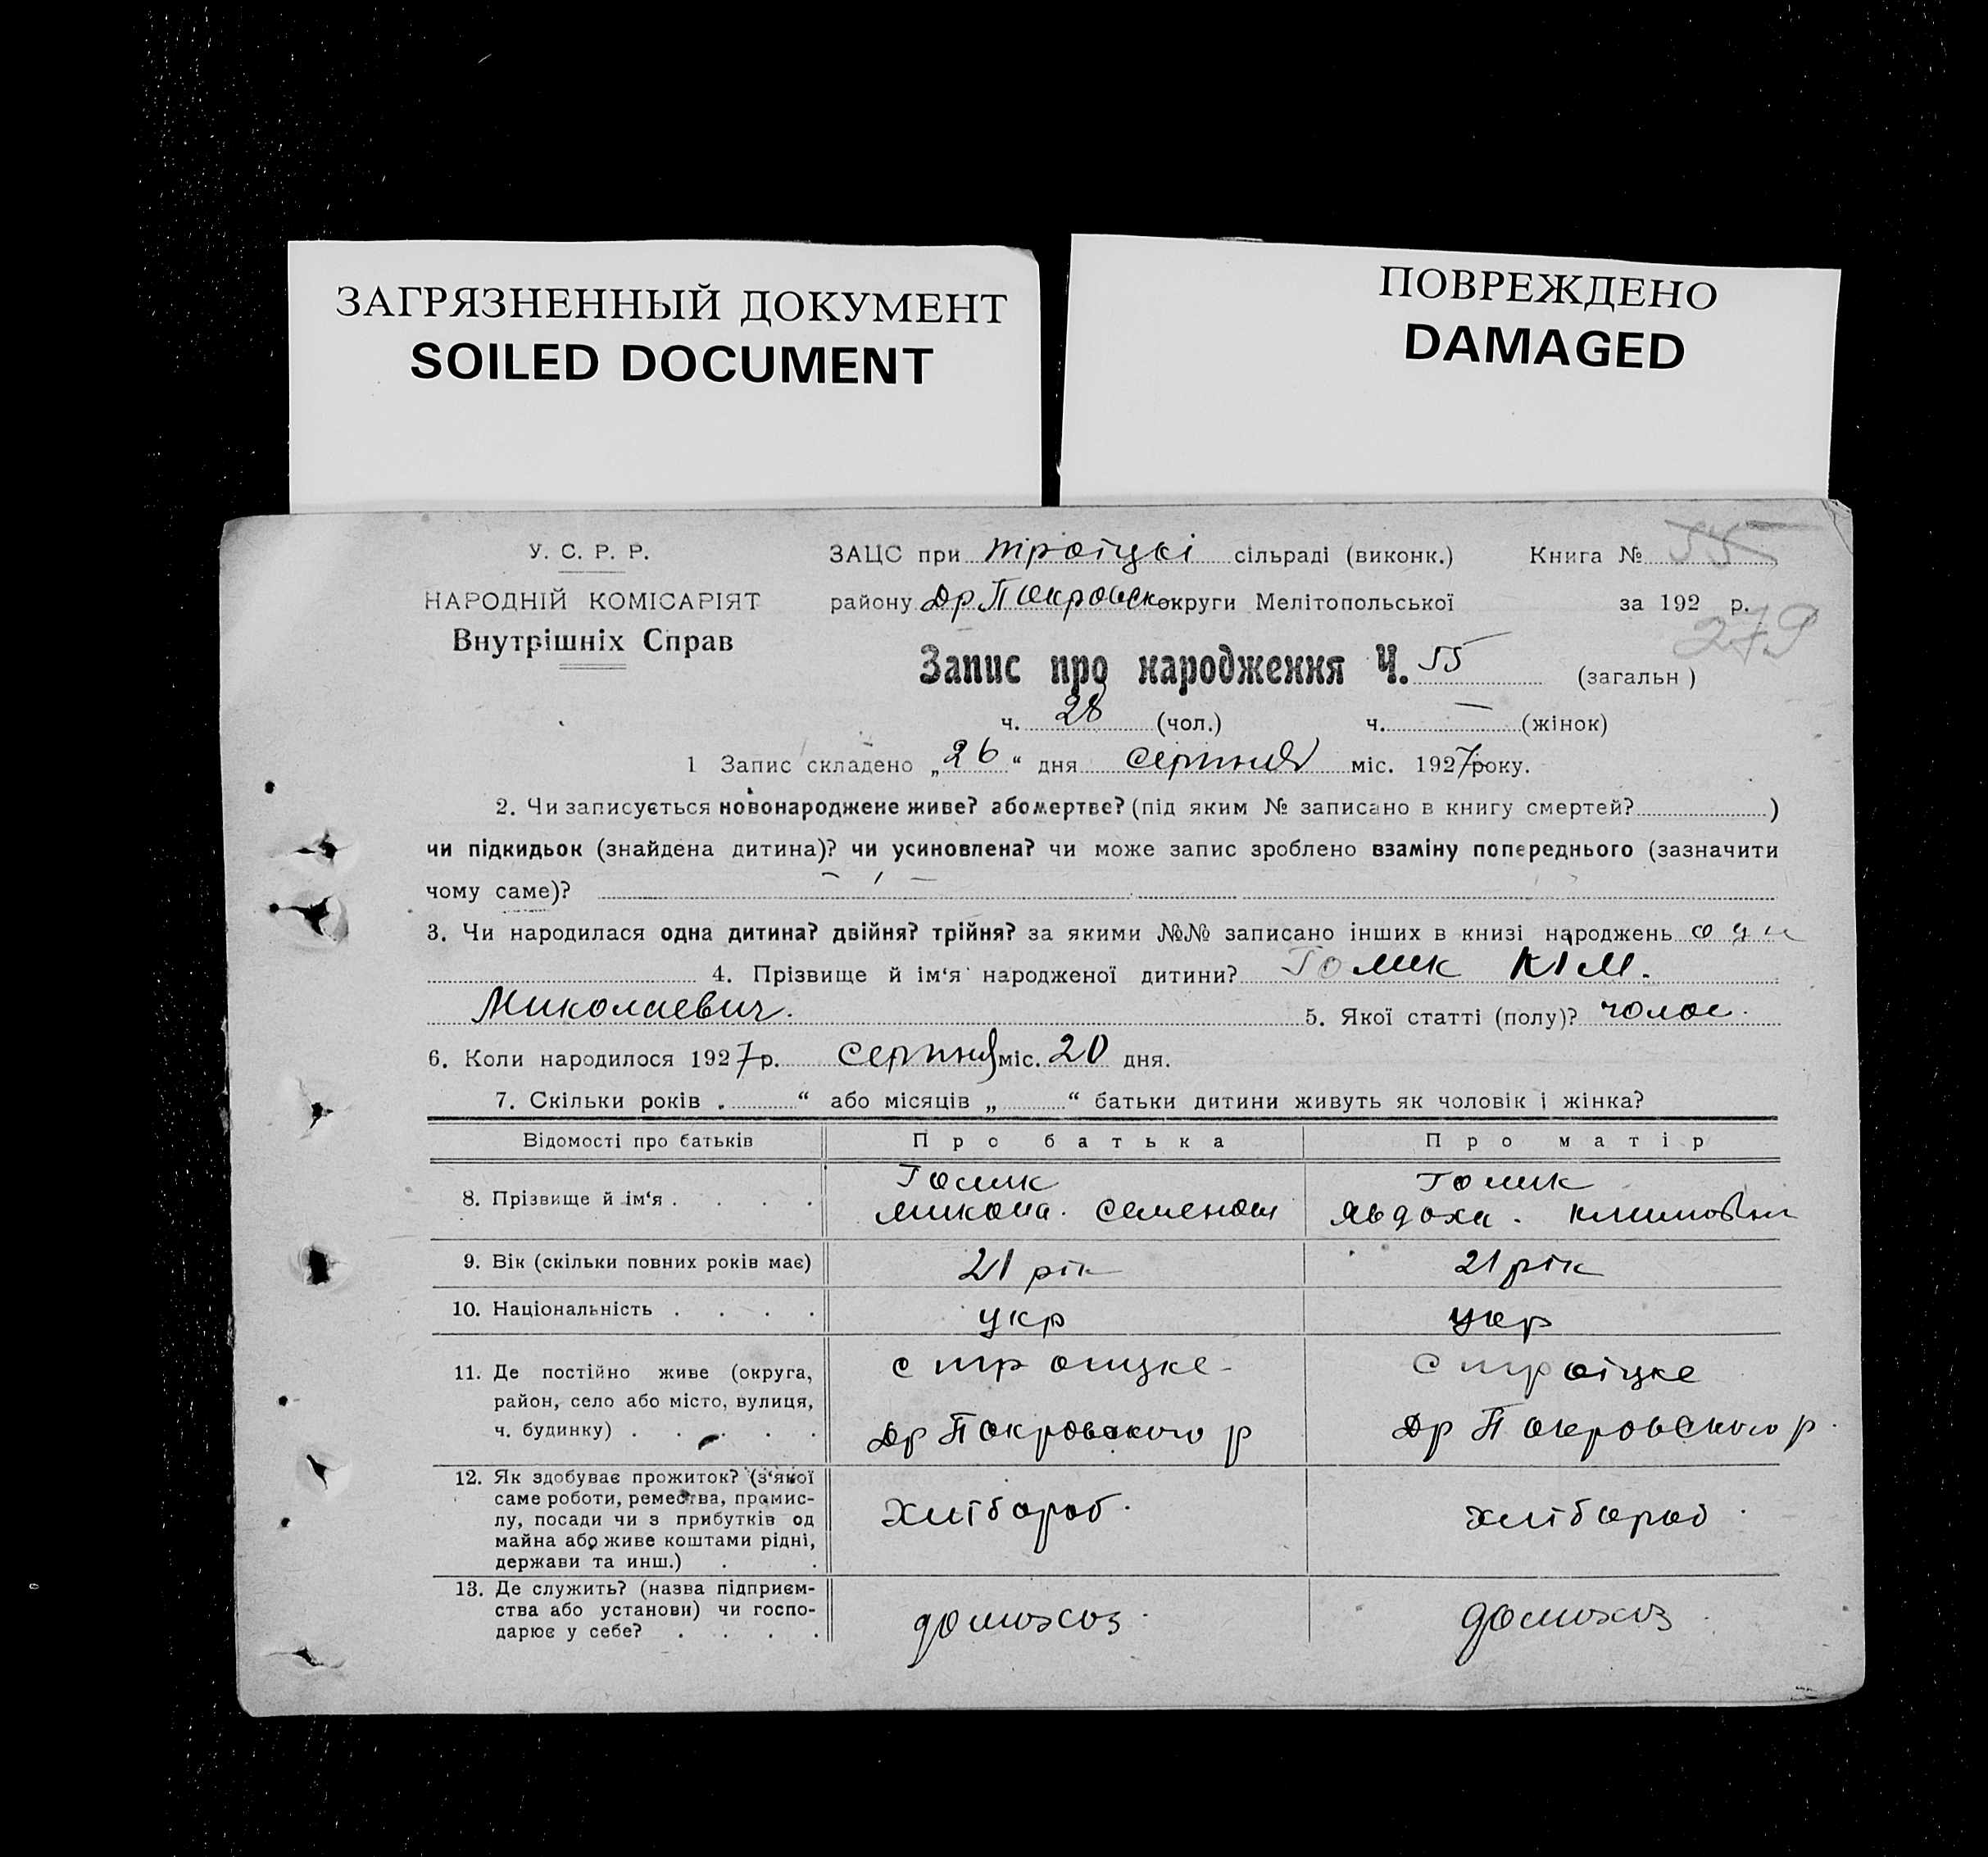 ЗАГРЯЗНЕННЫЙ ДОКУМЕНТ
SOILED DOCUMENT
ПОВРЕЖДЕНО
DAMAGED
У. С. Р. Р.
НАРОДНІЙ КОМІСАРІЯТ
Внутрішніх Справ
ЗАЦС при троіцкі сільраді (виконк.) Книга № 55
району Др Покровск округи Мелітопольської за 192 р.
279
Запис про народження Ч. 55 (загальн)
ч. 28 (чол.) ч. — (жінок)
1 Запис складено „26“ дня серпня міс. 1927 року.
2. Чи записується новонароджене живе? або мертве? (під яким № записано в книгу смертей? )
чи підкидьок (знайдена дитина)? чи усиновлена? чи може запис зроблено взаміну попереднього (зазначити
чому саме)?
3. Чи народилася одна дитина? двійня? трійня? за якими №№ записано інших в книзі народжень
4. Прізвище й ім‘я народженої дитини? Голик Кім.
Миколаевич. 5. Якої статті (полу)? чолов.
6. Коли народилося 1927 р. серпня міс. 20 дня.
7. Скільки років „ “ або місяців „ “ батьки дитини живуть як чоловік і жінка?
Відомості про батьків Про батька Про матір
8. Прізвище й ім‘я . . . . Голик Голик
микола. Семенов Явдоха. климовни
9. Вік (скільки повних років має) 21 рік 21 рік
10. Національність . . . . укр укр
11. Де постійно живе (округа, с троицке с троіцке
район, село або місто, вулиця,
ч. будинку) . . . . . Др Покровского р Др Покровского р.
12. Як здобуває прожиток? (з‘якої
саме роботи, ремества, промис-
лу, посади чи з прибутків од хлібороб. хлібороб.
майна або живе коштами рідні,
держави та инш.) . .
13. Де служить? (назва підприєм-
ства або установи) чи госпо- домохоз. домохоз.
дарює у себе? . . . .